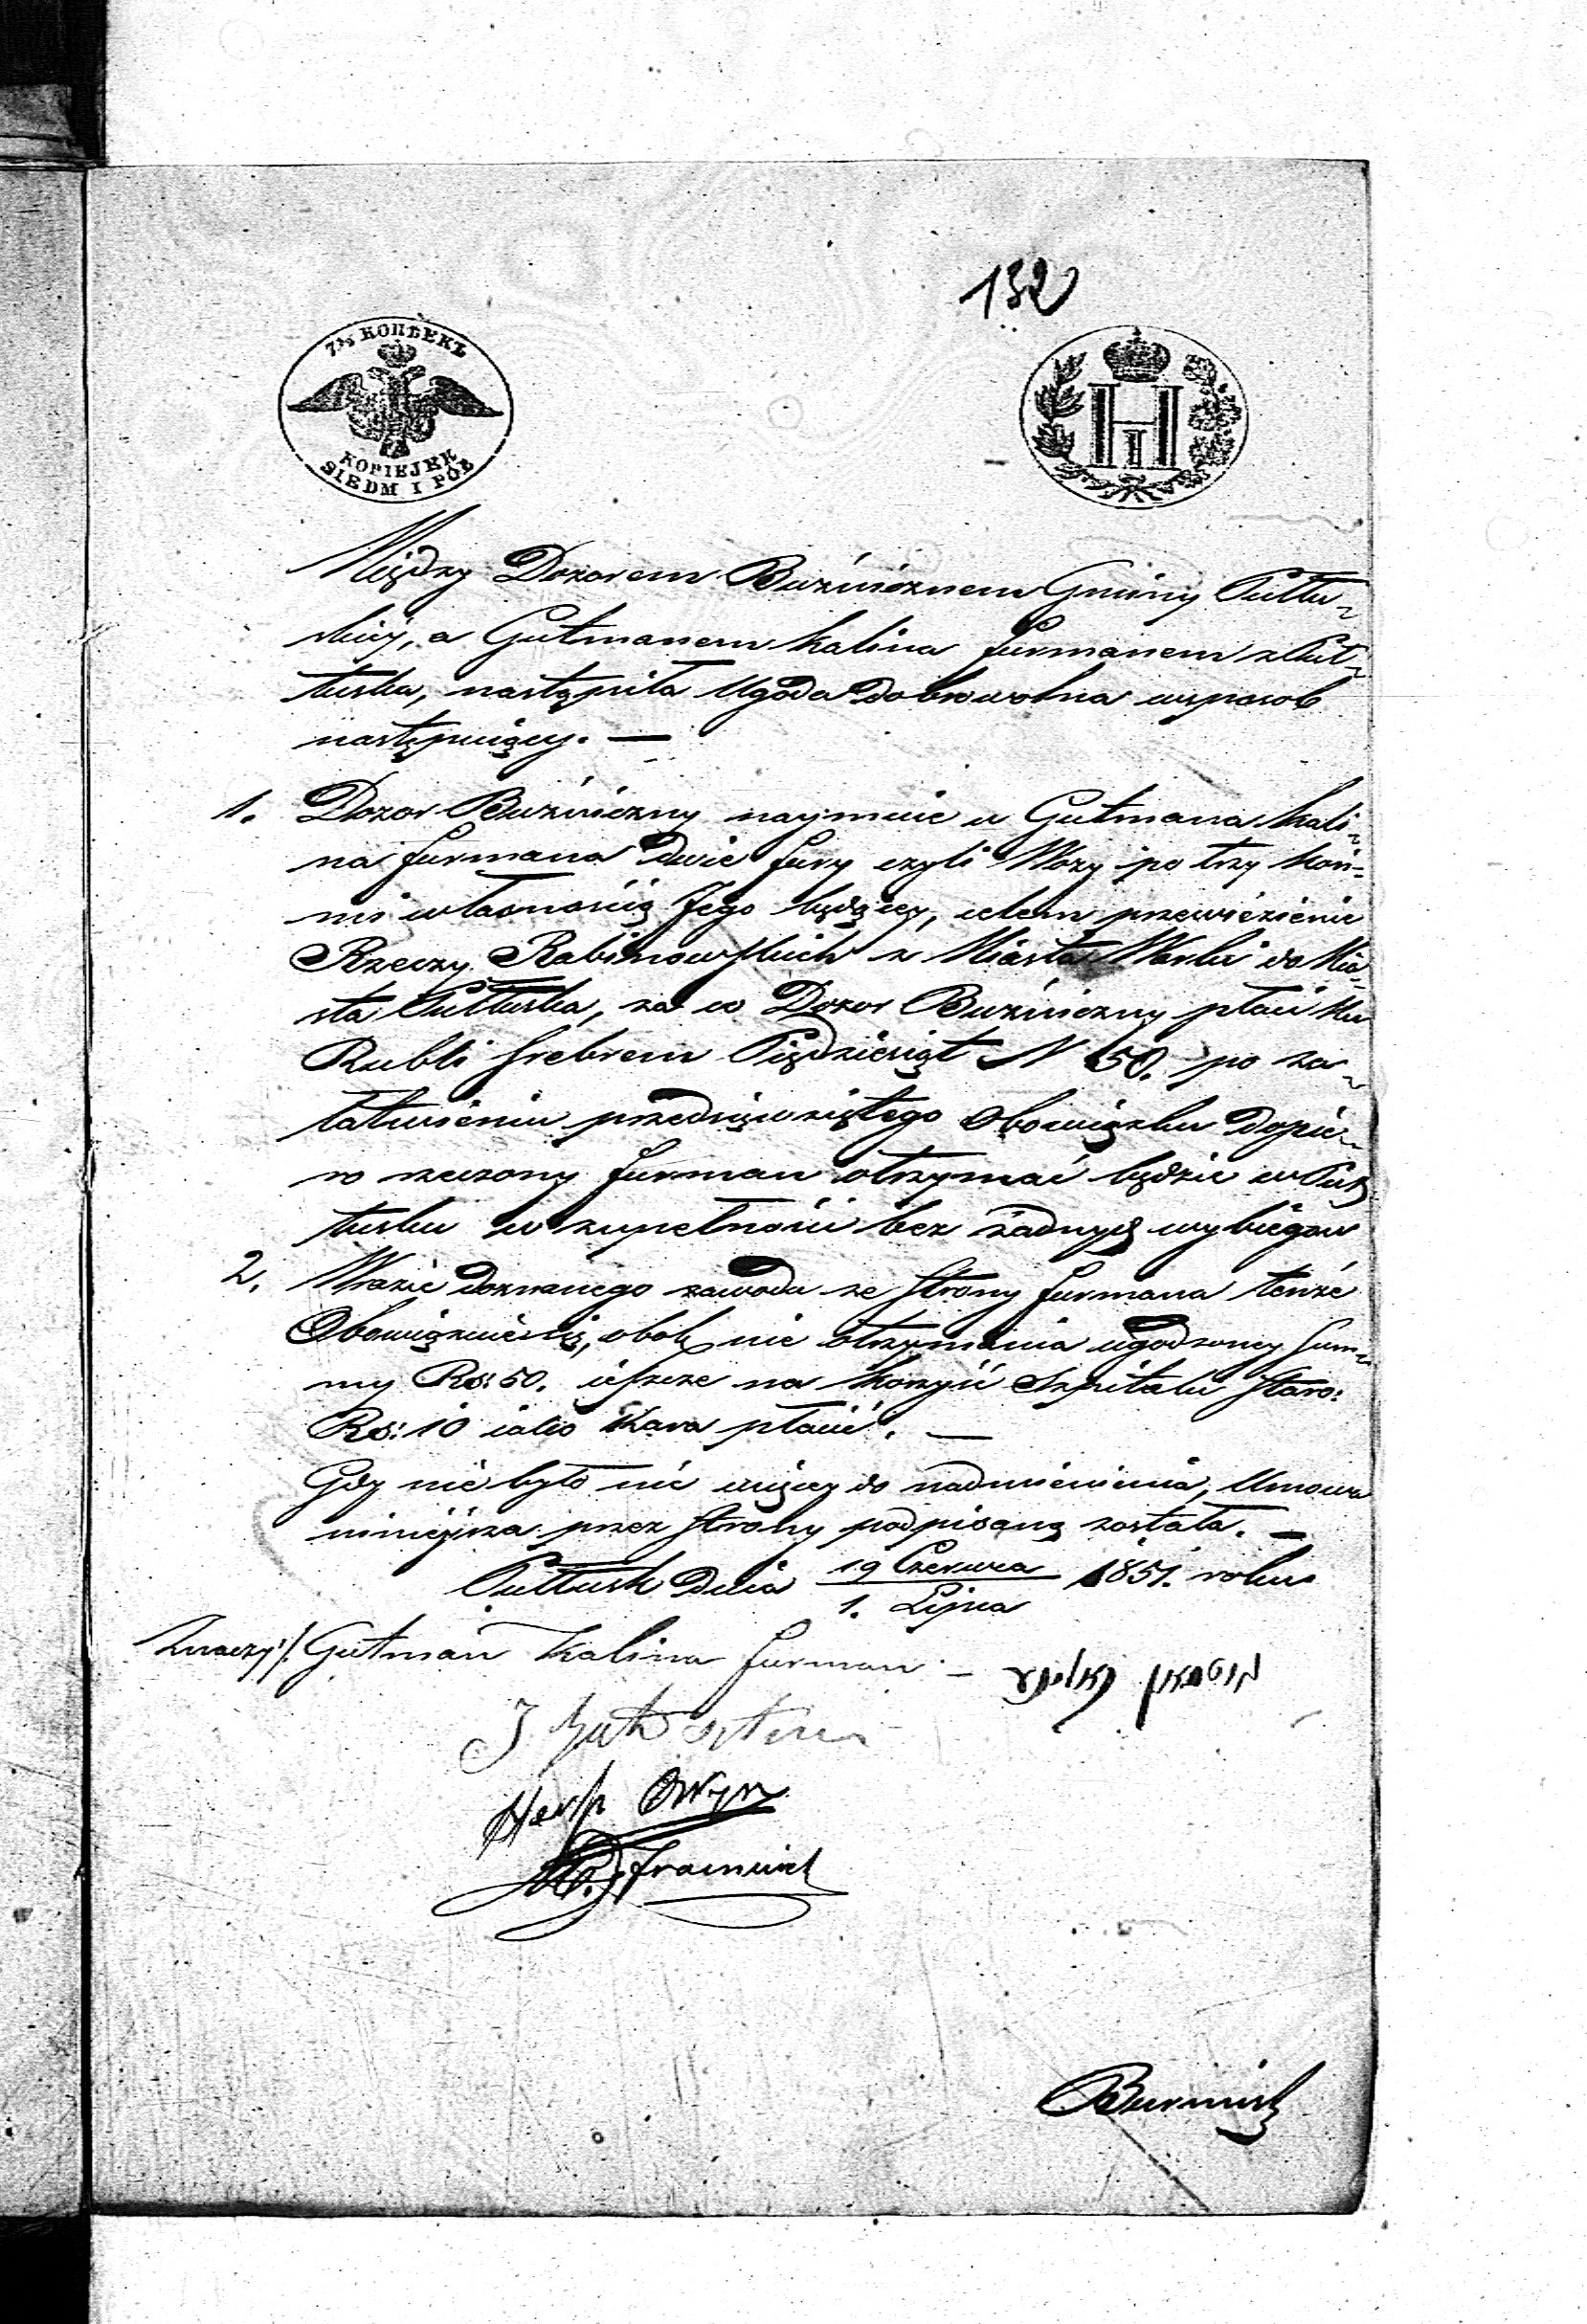 132
7½ КОПѢЕКЪ
KOPIEJEK
SIEDM I PÓŁ
H I
Między Dozorem Buźnicznem Gminy Pułtu-
skiej, a Gutmanem Kalina furmanem z Puł-
tuska, nastąpiła Ugoda dobrowolna wsposob
następuiący. —
1. Dozor Buźniczny naymuie u Gutmana Kali-
na furmana dwie fury czyli Wozy po trzy Kon-
mi własnością Jego będący, celem przewiezienia
Rzeczy Rabinowskich z Miasta Warki do Mia-
sta Pułtuska, za co Dozor Buźniczny płaci Mu
Rubli Srebrem Pięćdziesiąt N 50. po za-
łatwieniu przedsięwziętego Obowiązku dopie-
ro rzeczony furman otrzymać będzie w Puł-
tusku w zupełności bez żadnych wybiegow
2. Wrazie doznanego zawodu ze strony furmana tenże
Obowiązuie się, obok nie otrzymania ugodzoney Sum-
my Rs: 50. ieszcze na korzyść Szpitala Staro:
Rs: 10 iako Kara płacić. —
Gdy nie było nic więcey do nadmienienia, Umowa
ninieysza przez Strony podpisaną została. —
Pułtusk dnia 19 Czerwca / 1. Lipca 1851. roku
Znaczy /: Gutman Kalina furman — גוטמאן קאלינא
Hersz
Burmistrz